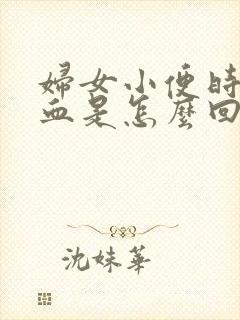 婦女小便時
血是怎麼回
沈妹華